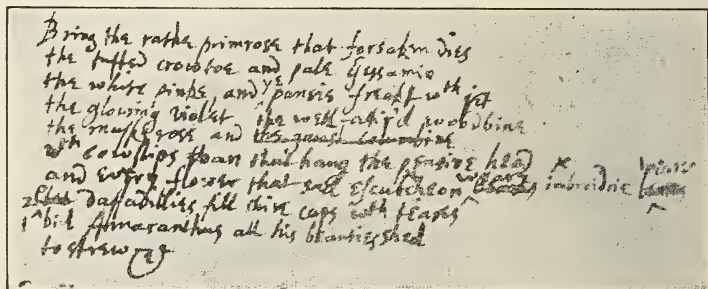 Bring the rathe primrose that forsaken dies
the tufted crowtoe and pale Gessamin
the white pinke, and ye pansie freakt wth jet
the glowing violet the well-attir'd woodbine
the muske rose and the garish columbine
wth cowslips wan that hang the pensive head
and every flower that sad escutcheon beares imbroidrie weares
2 daffadillies fill thire cups with teares
1 bid Amaranthus all his beauties shed
to strew &c